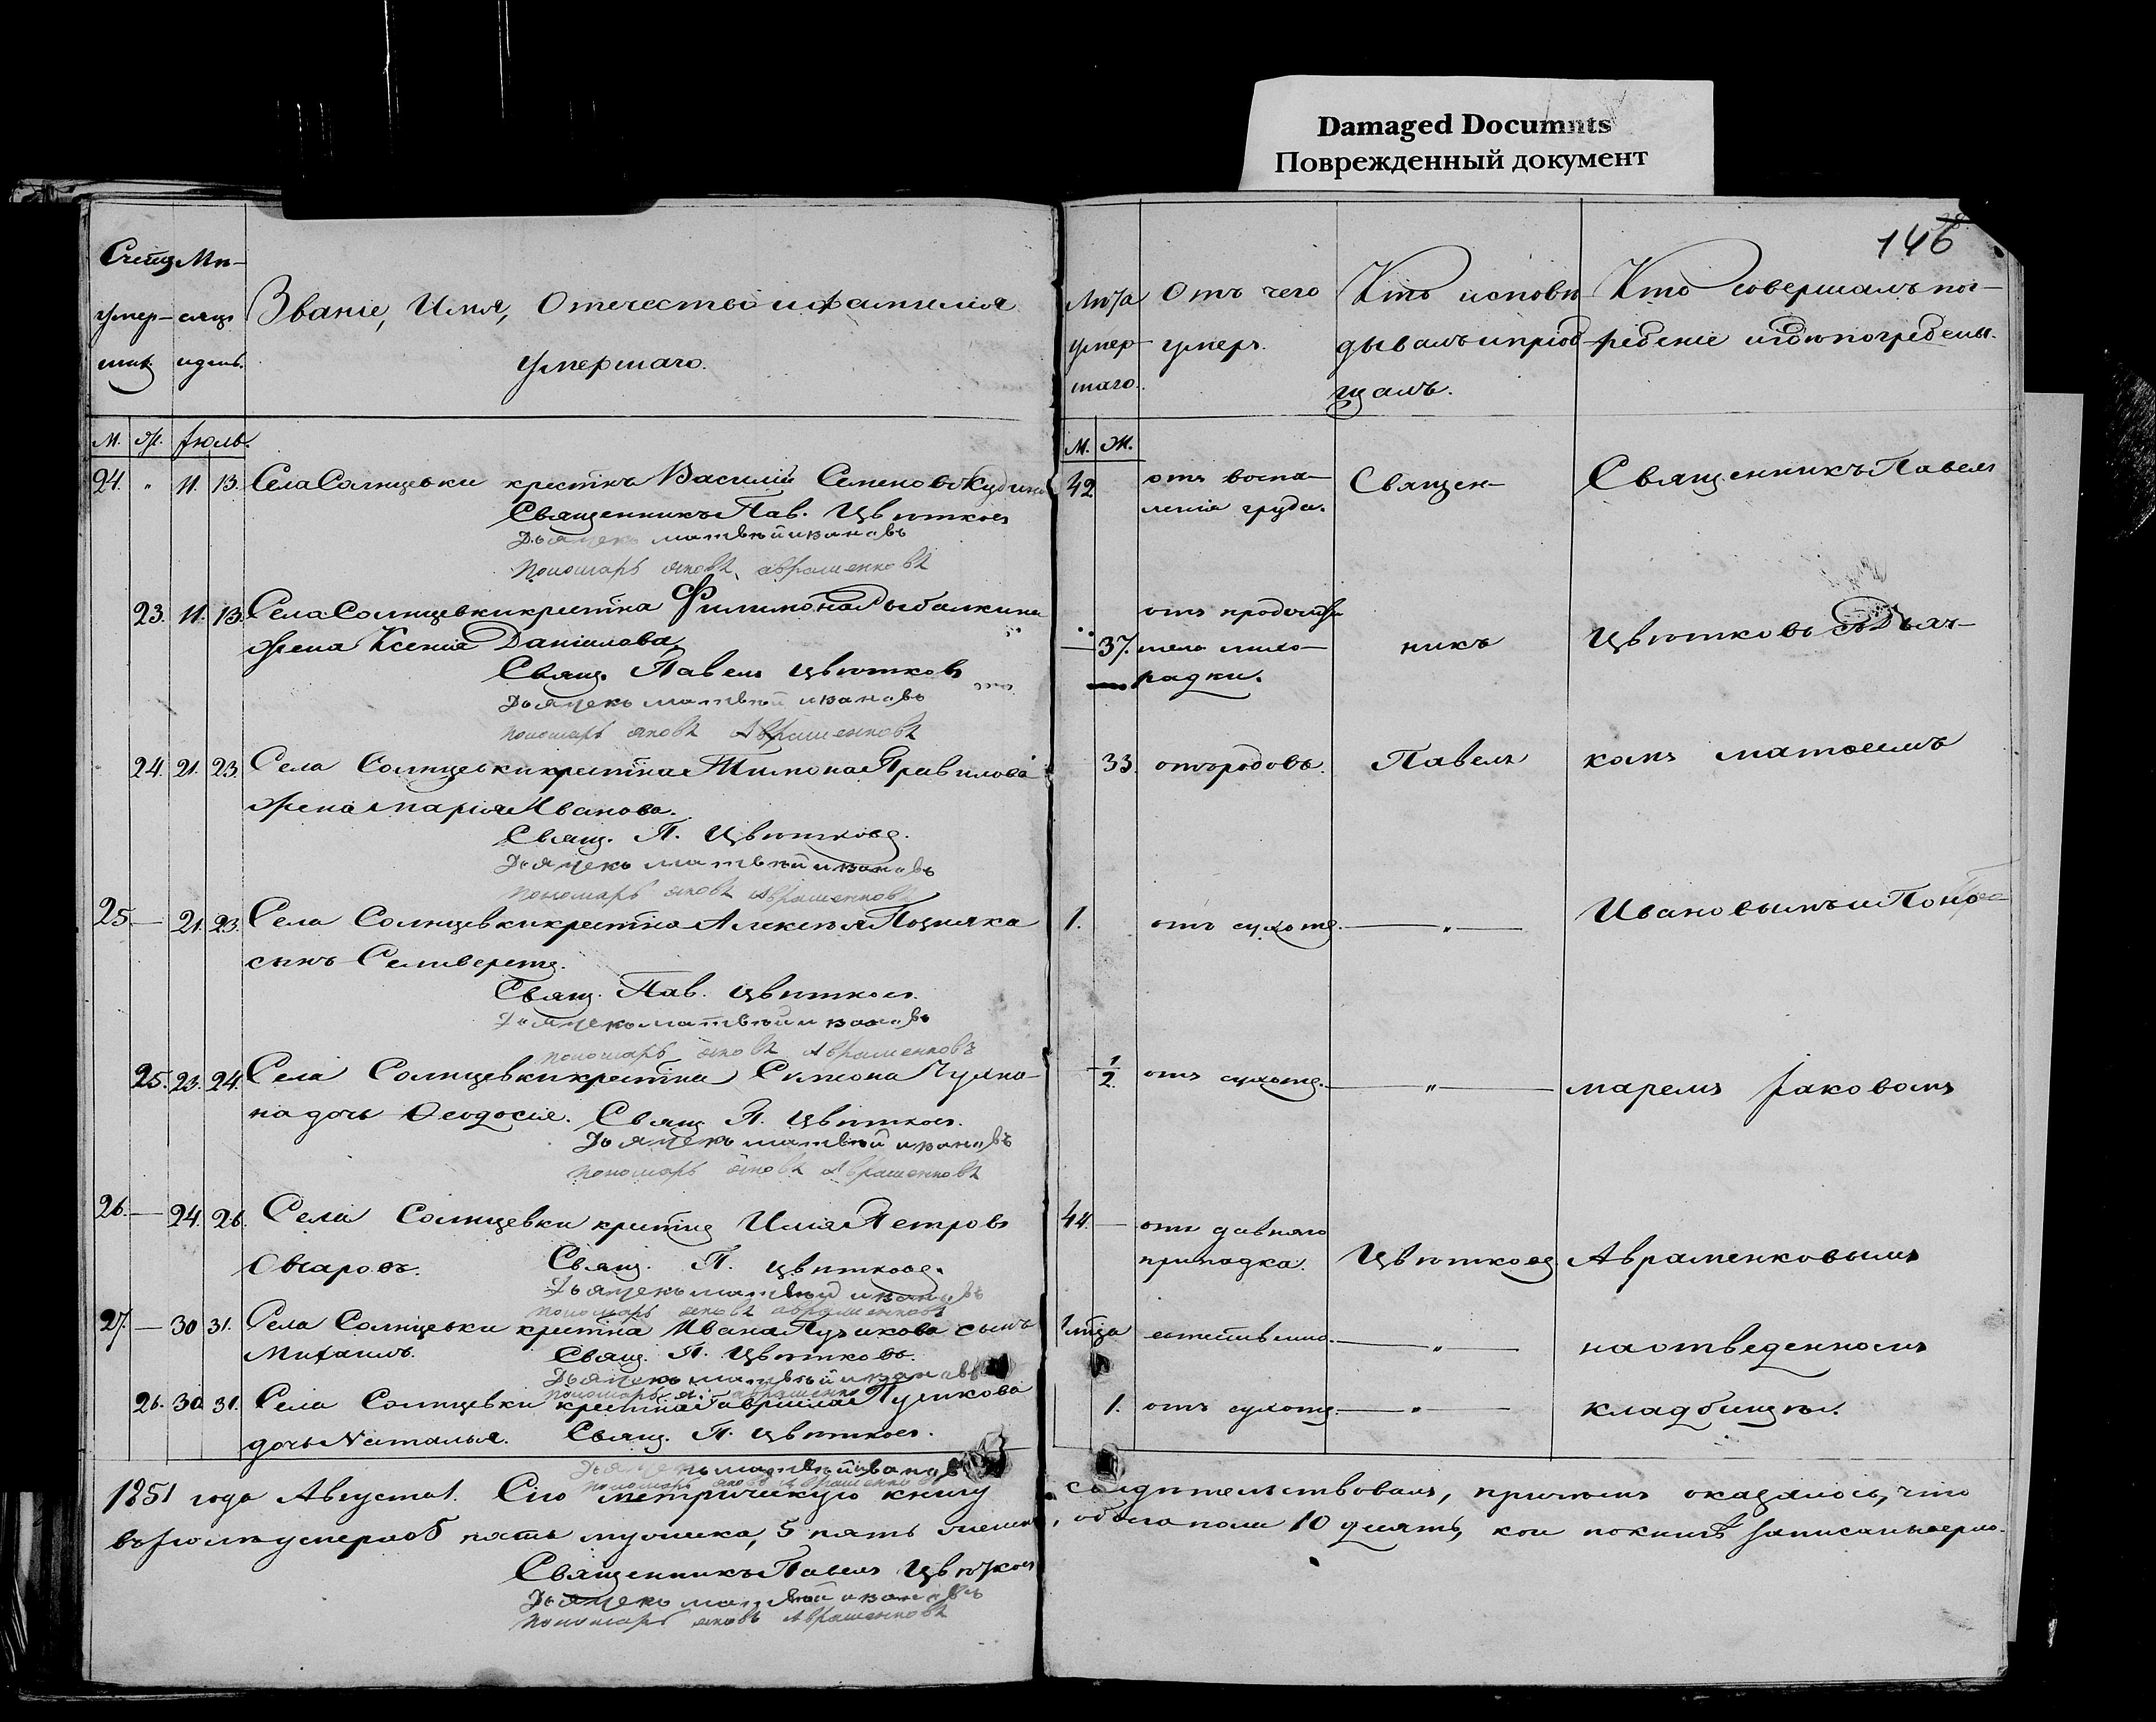 Damaged Documnts
Поврежденный документ
146
Счетъ Мѣ-
умер- сяцъ
шихъ и день.
Званіе, Имя, Отечество и фамилія
умершаго.
М. Ж. Іюль.
24. " 11. 13. Села Солнцевки крестнъ Василій Семеновъ
Священникъ Пав. Цвѣтковъ
Дьячекъ матвѣй ивановъ
Пономарь яковъ авраменковъ
23. 11. 13. Села Солнцевки крестна Филимона Рыбалкина
жена Ксенія Даніилова
Свящ. Павелъ Цвѣтковъ
Дьячекъ матвѣй ивановъ
пономарь яковъ Авраменковъ
24. 21. 23. Села Солнцевки крестна Тимона Правилова
жена Марія Иванова.
Свящ. П. Цвѣтковъ.
Дьячекъ матвѣй ивановъ
пономарь яковъ Авраменковъ
25. — 21. 23. Села Солнцевки крестна Алексѣя
сынъ Селиверстъ.
Свящ. Пав. Цвѣтковъ.
Дьячекъ матвѣй ивановъ
пономарь яковъ Авраменковъ
25. 23. 24. Села Солнцевки крестна Симона
на дочь Ѳеодосія. Свящ. П. Цвѣтковъ.
Дьячекъ матвѣй ивановъ
пономарь яковъ Авраменковъ
26. — 24. 26. Села Солнцевки Илія Петровъ
Овчаровъ. Свящ. П. Цвѣтковъ.
Дьячекъ матвѣй ивановъ
пономарь яковъ авраменковъ
27. — 30 31. Села Солнцевки крестна Ивана сынъ
Михаилъ. Свящ. П. Цвѣтковъ.
Дьячекъ матвѣй ивановъ
пономарь я. авраменко
26. 30. 31. Села Солнцевки крестна Гавріила Пушкова
дочь Наталья. Свящ. П. Цвѣтковъ.
Дьячекъ матвѣй ивановъ
пономарь яковъ Авраменковъ
1851 года Августа 1. Сію метрическую книгу
въ Іюлѣ умерло 5 пять мужска, 5 пять
Священникъ Павелъ Цвѣтковъ
Дьячекъ матвѣй ивановъ
пономарь яковъ Авраменковъ
Лѣта
умер-
шаго.
Отъ чего
умеръ.
Кто исповѣ
дывалъ и пріоб
щалъ.
Кто совершалъ пог-
ребеніе и гдѣ погребены.
М. Ж.
42 отъ воспа-
ленія груди.
Священ-
Священникъ Павелъ
37. отъ
радки.
никъ
Цвѣтковъ съ Дьяч-
33. отъ родовъ.
Павелъ
комъ матѳеемъ
1. отъ сухотъ. — " —
Ивановымъ и Поно
1/2. отъ сухотъ. — " —
маремъ Іаковомъ
44. — отъ давняго
припадка.
Цвѣтковъ
Авраменковымъ
— " —
на отведенномъ
1. отъ сухотъ. — " —
кладбищѣ.
свидѣтельствовали, причемъ оказалось, что
обоего пола 10 кои записаны вѣрно.